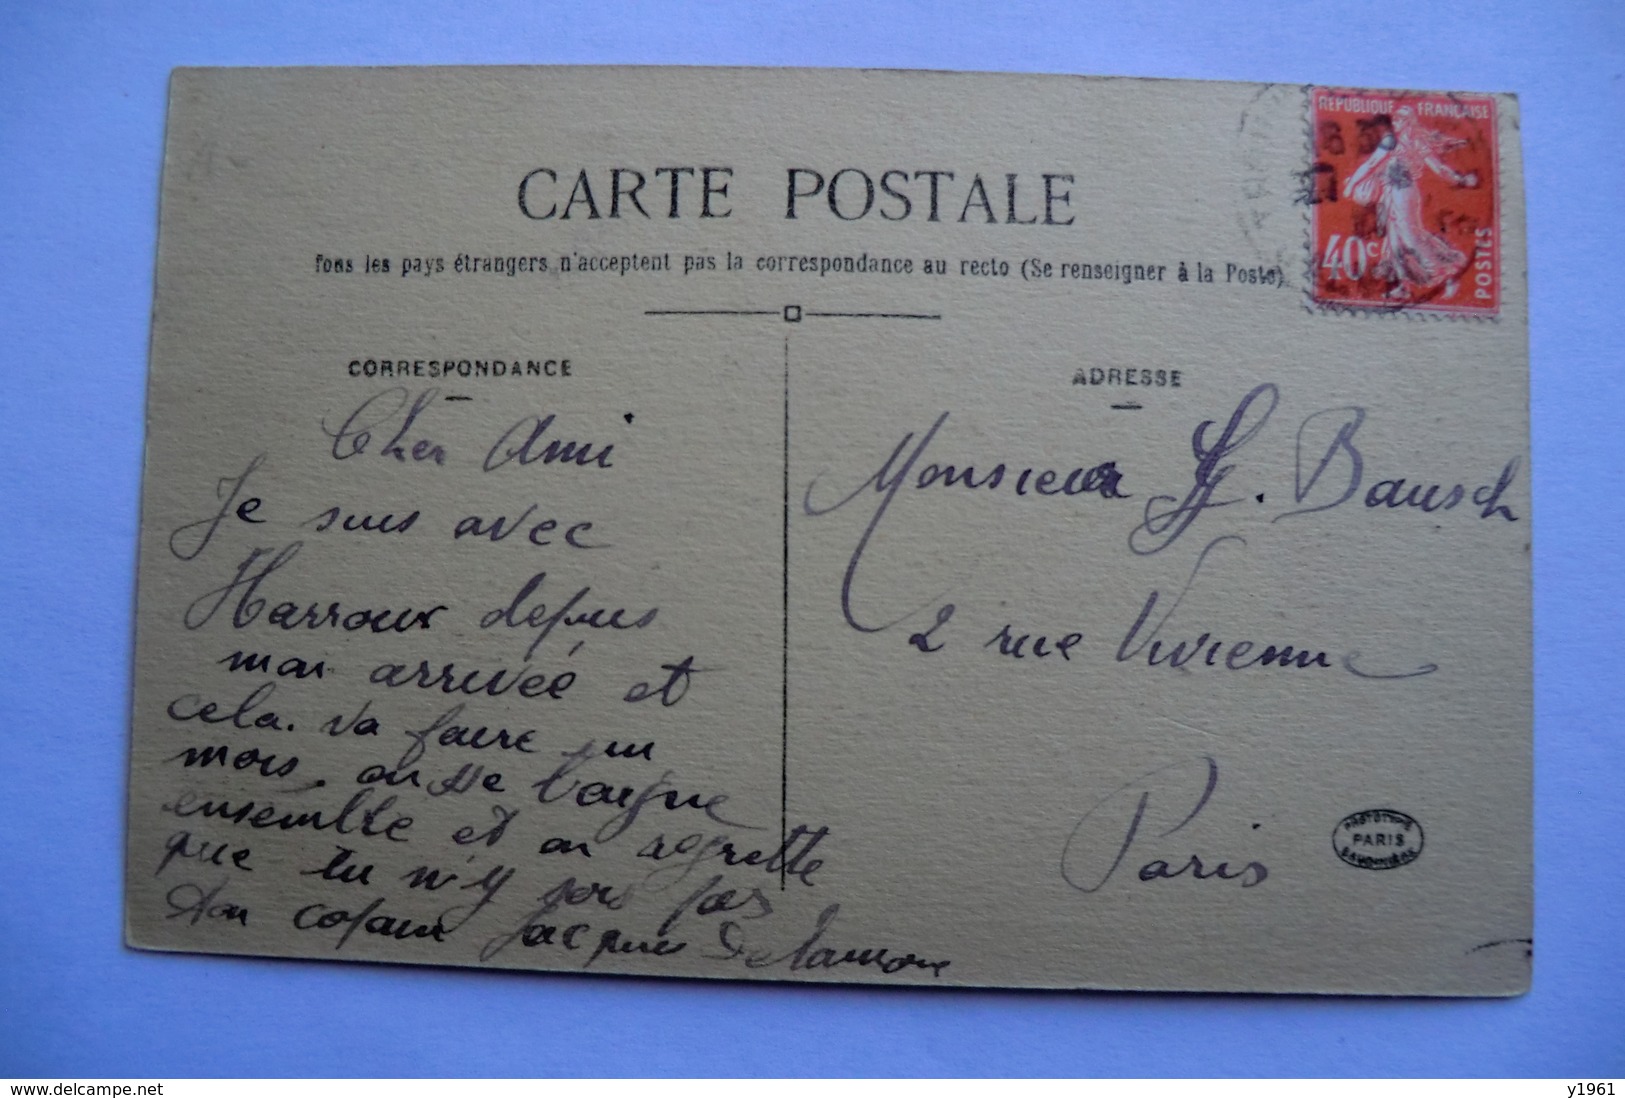 CARTE POSTALE
Tous les pays étrangers n'acceptent pas la correspondance au recto (Se renseigner à la Poste)
CORRESPONDANCE
Cher Ami
Je suis avec
Harroux depuis
mon arrivée et
cela. va faire un
mois. on se baigne
ensemble et on regrette
que tu n'y sois pas
ton copain Jacques Delamare
ADRESSE
Monsieur G. Bausch
2 rue Vivienne
Paris
REPUBLIQUE FRANÇAISE
40c
POSTES
PARIS
www.delcampe.net
y1961